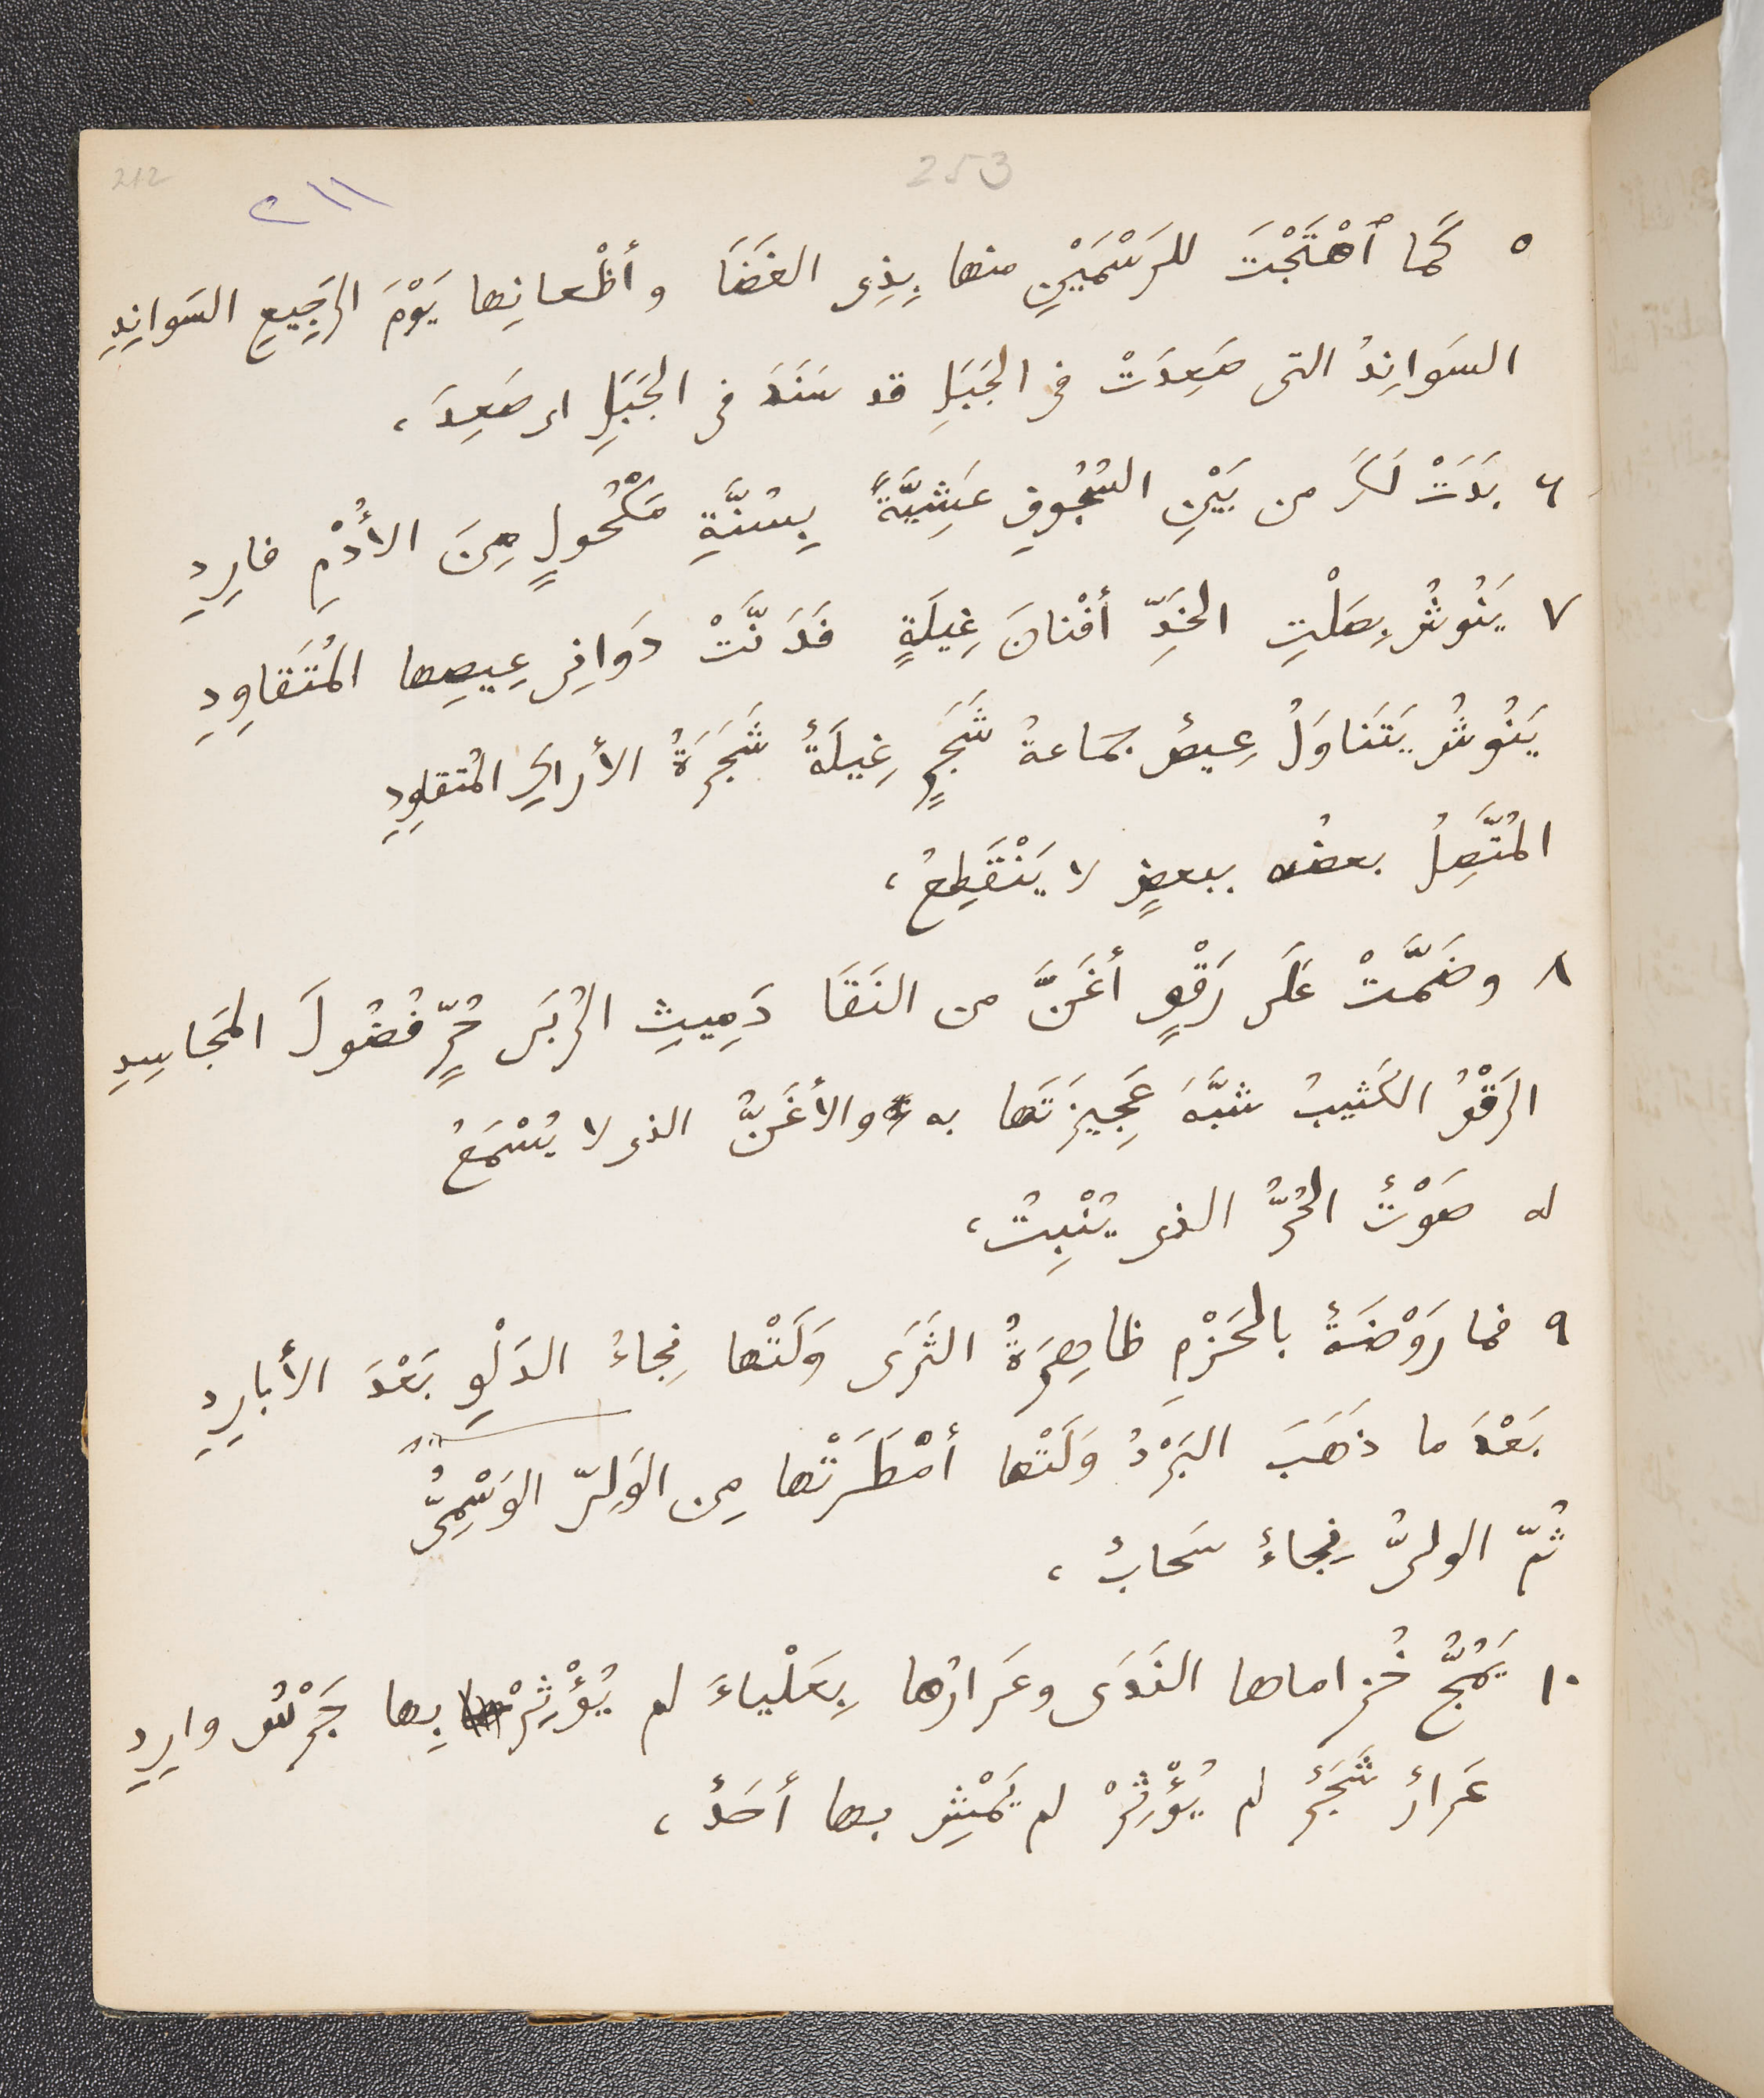 212
253
٢١١
٥ كَما ٱهْتَجْتَ للرَسْمَيْنِ منها بِذِى الغَضَا وأظْعانِها يَوْمَ الرَجِيعِ السَوانِدِ
السَوانِدُ التى صَعِدَتْ فى الجَبَلِ قد سَنَدَ فى الجَبَلِ اى صَعِدَ،
٦ بَدَتْ لَكَ من بَيْنِ السُجُوفِ عَشِيَّةً بِسُنَّةِ مَكْحُولٍ مِنَ الأُدْمِ فارِدِ
٧ يَنُوشُ بِصَلْتِ الخَدِّ أفْنانَ غِيلَةٍ فَدَنَّتْ دَوانِى عِيصِها المُتَقاوِدِ
يَنُوشُ يَتَناوَلُ عِيصٌ جَماعةُ شَجَرٍ غِيلَةٌ شَجَرَةُ الأَراكِ المُتقاوِدِ
المُتَّصِلُ بعضُه ببعضٍ لا يَنْقَطِعُ،
٨ وضَمَّتْ عَلَى رَقْوٍ أغَنَّ من النَقَا دَمِيثِ الرُبَى حُرٍّ فُضُولَ المَجاسِدِ
الرَقْوُ الكَثيبُ شبَّهَ عَجِيزَتَها به والأغَنُّ الذى لا يُسْمَعُ
له صَوْتٌ الحُرُّ الذى يُنْبِتُ،
٩ فما رَوْضَةٌ بالحَزْمِ ظاهِرَةُ الثَرَى وَلَتْها نِجاءُ الدَلْوِ بَعْدَ الأبارِدِ
بَعْدَ ما ذَهَبَ البَرْدُ وَلَتْها أمْطَرَتْها مِن الوَلِىّ الوَسْمِىُّ
ثُمّ الولىُّ نِجاءٌ سَحابٌ،
١٠ يَمُجُّ خُزاماها النَدَى وعَرارُها بِعَلْياءَ لم يُؤْثِرْ بِها جَرْسُ وارِدِ
عَرارٌ شَجَرٌ لم يُؤْثِرْ لم يَمْشِ بها أحَدٌ،